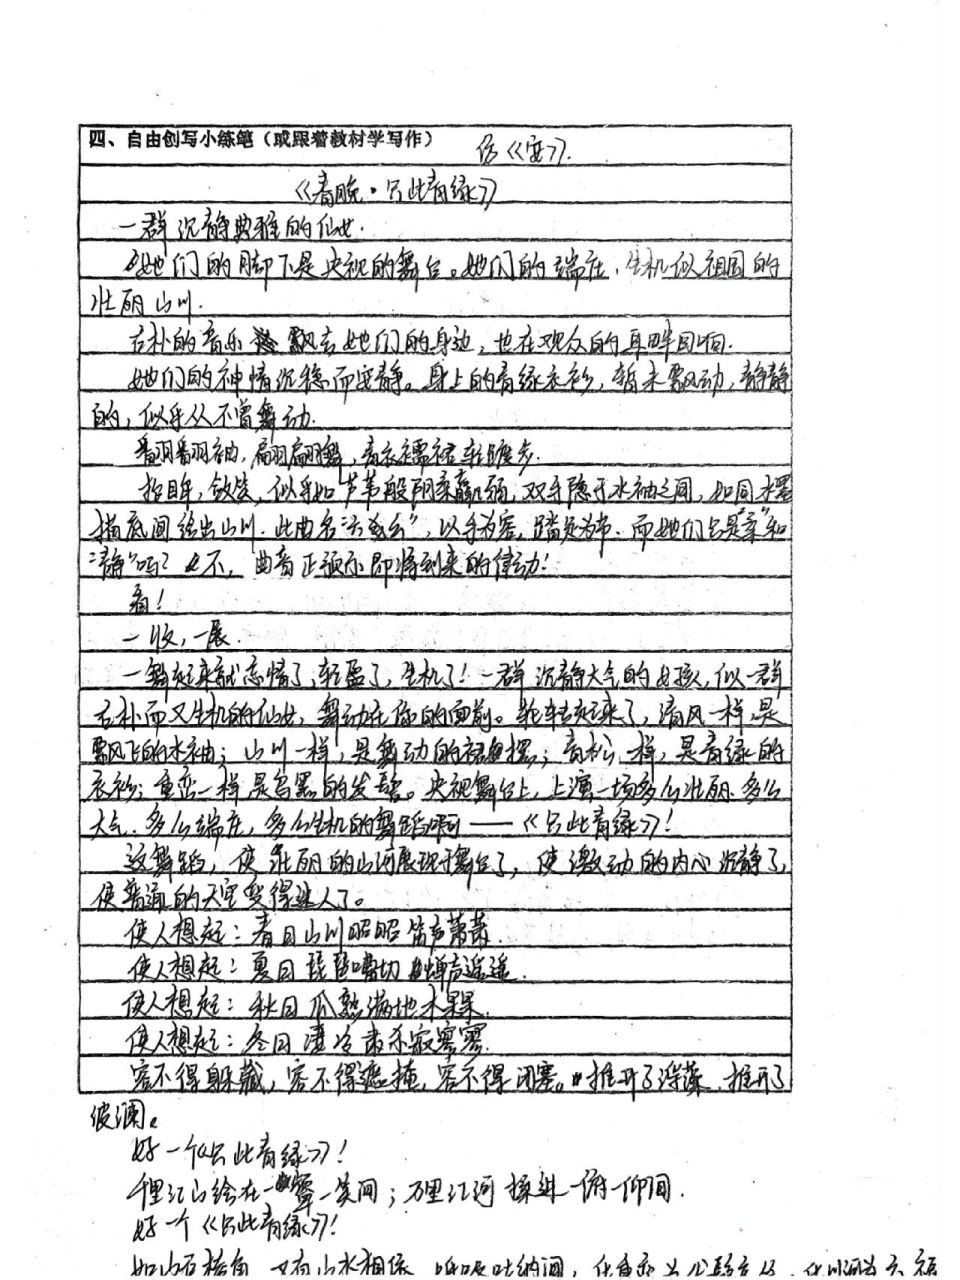 四、自由创写小练笔（或跟着教材学写作） 仿《安》.
《春晚·只此青绿》
一群沉静典雅的仙女.
她们的脚下是央视的舞台。她们的端庄、生机似祖国的
壮丽山川.
古朴的音乐飘去她们的身边，也在观众的耳畔回响.
她们的神情沉稳而安静。身上的青绿衣衫，暂未飘动，静静
的，似乎从不曾舞动.
翻翻袖，翩翩舞，青衣襦裙轻踱步.
抬眸，敛，似乎如芦苇般阴柔羸弱，双手隐于水袖之间，如同水墨
描底间绘出山川.此曲名"”，以手为，踏足为.而她们只是"柔"和
"静"吗？不，曲音正预示即将到来的律动！
看！
一收，一展.
一舞起来就忘情了，轻盈了，生机了！一群沉静大气的女孩，似一群
古朴而又生机的仙女，舞动在你的面前。轮转起来了，清风一样，是
飘飞的水袖；山川一样，是舞动的裙摆；青松一样，是青绿的
衣衫；重峦一样是乌黑的发髻。央视舞台上，上演一场多么壮丽、多么
大气、多么端庄，多么生机的舞蹈啊——《只此青绿》！
这舞蹈，使壮丽的山河展现于舞台了，使激动的内心沉静了，
使普通的天空变得迷人了。
使人想起：春日山川昭昭笛声萧萧.
使人想起：夏日琵琶嘈切蝉声遥遥.
使人想起：秋日瓜熟满地木杲杲.
使人想起：冬日凄冷肃杀寂寥寥.
容不得躲藏，容不得遮掩，容不得闭塞。推开了，推开了
波澜。
好一个《只此青绿》！
千里江山绘在一颦一笑间；万里江河揉进一俯一仰间.
好一个《只此青绿》！